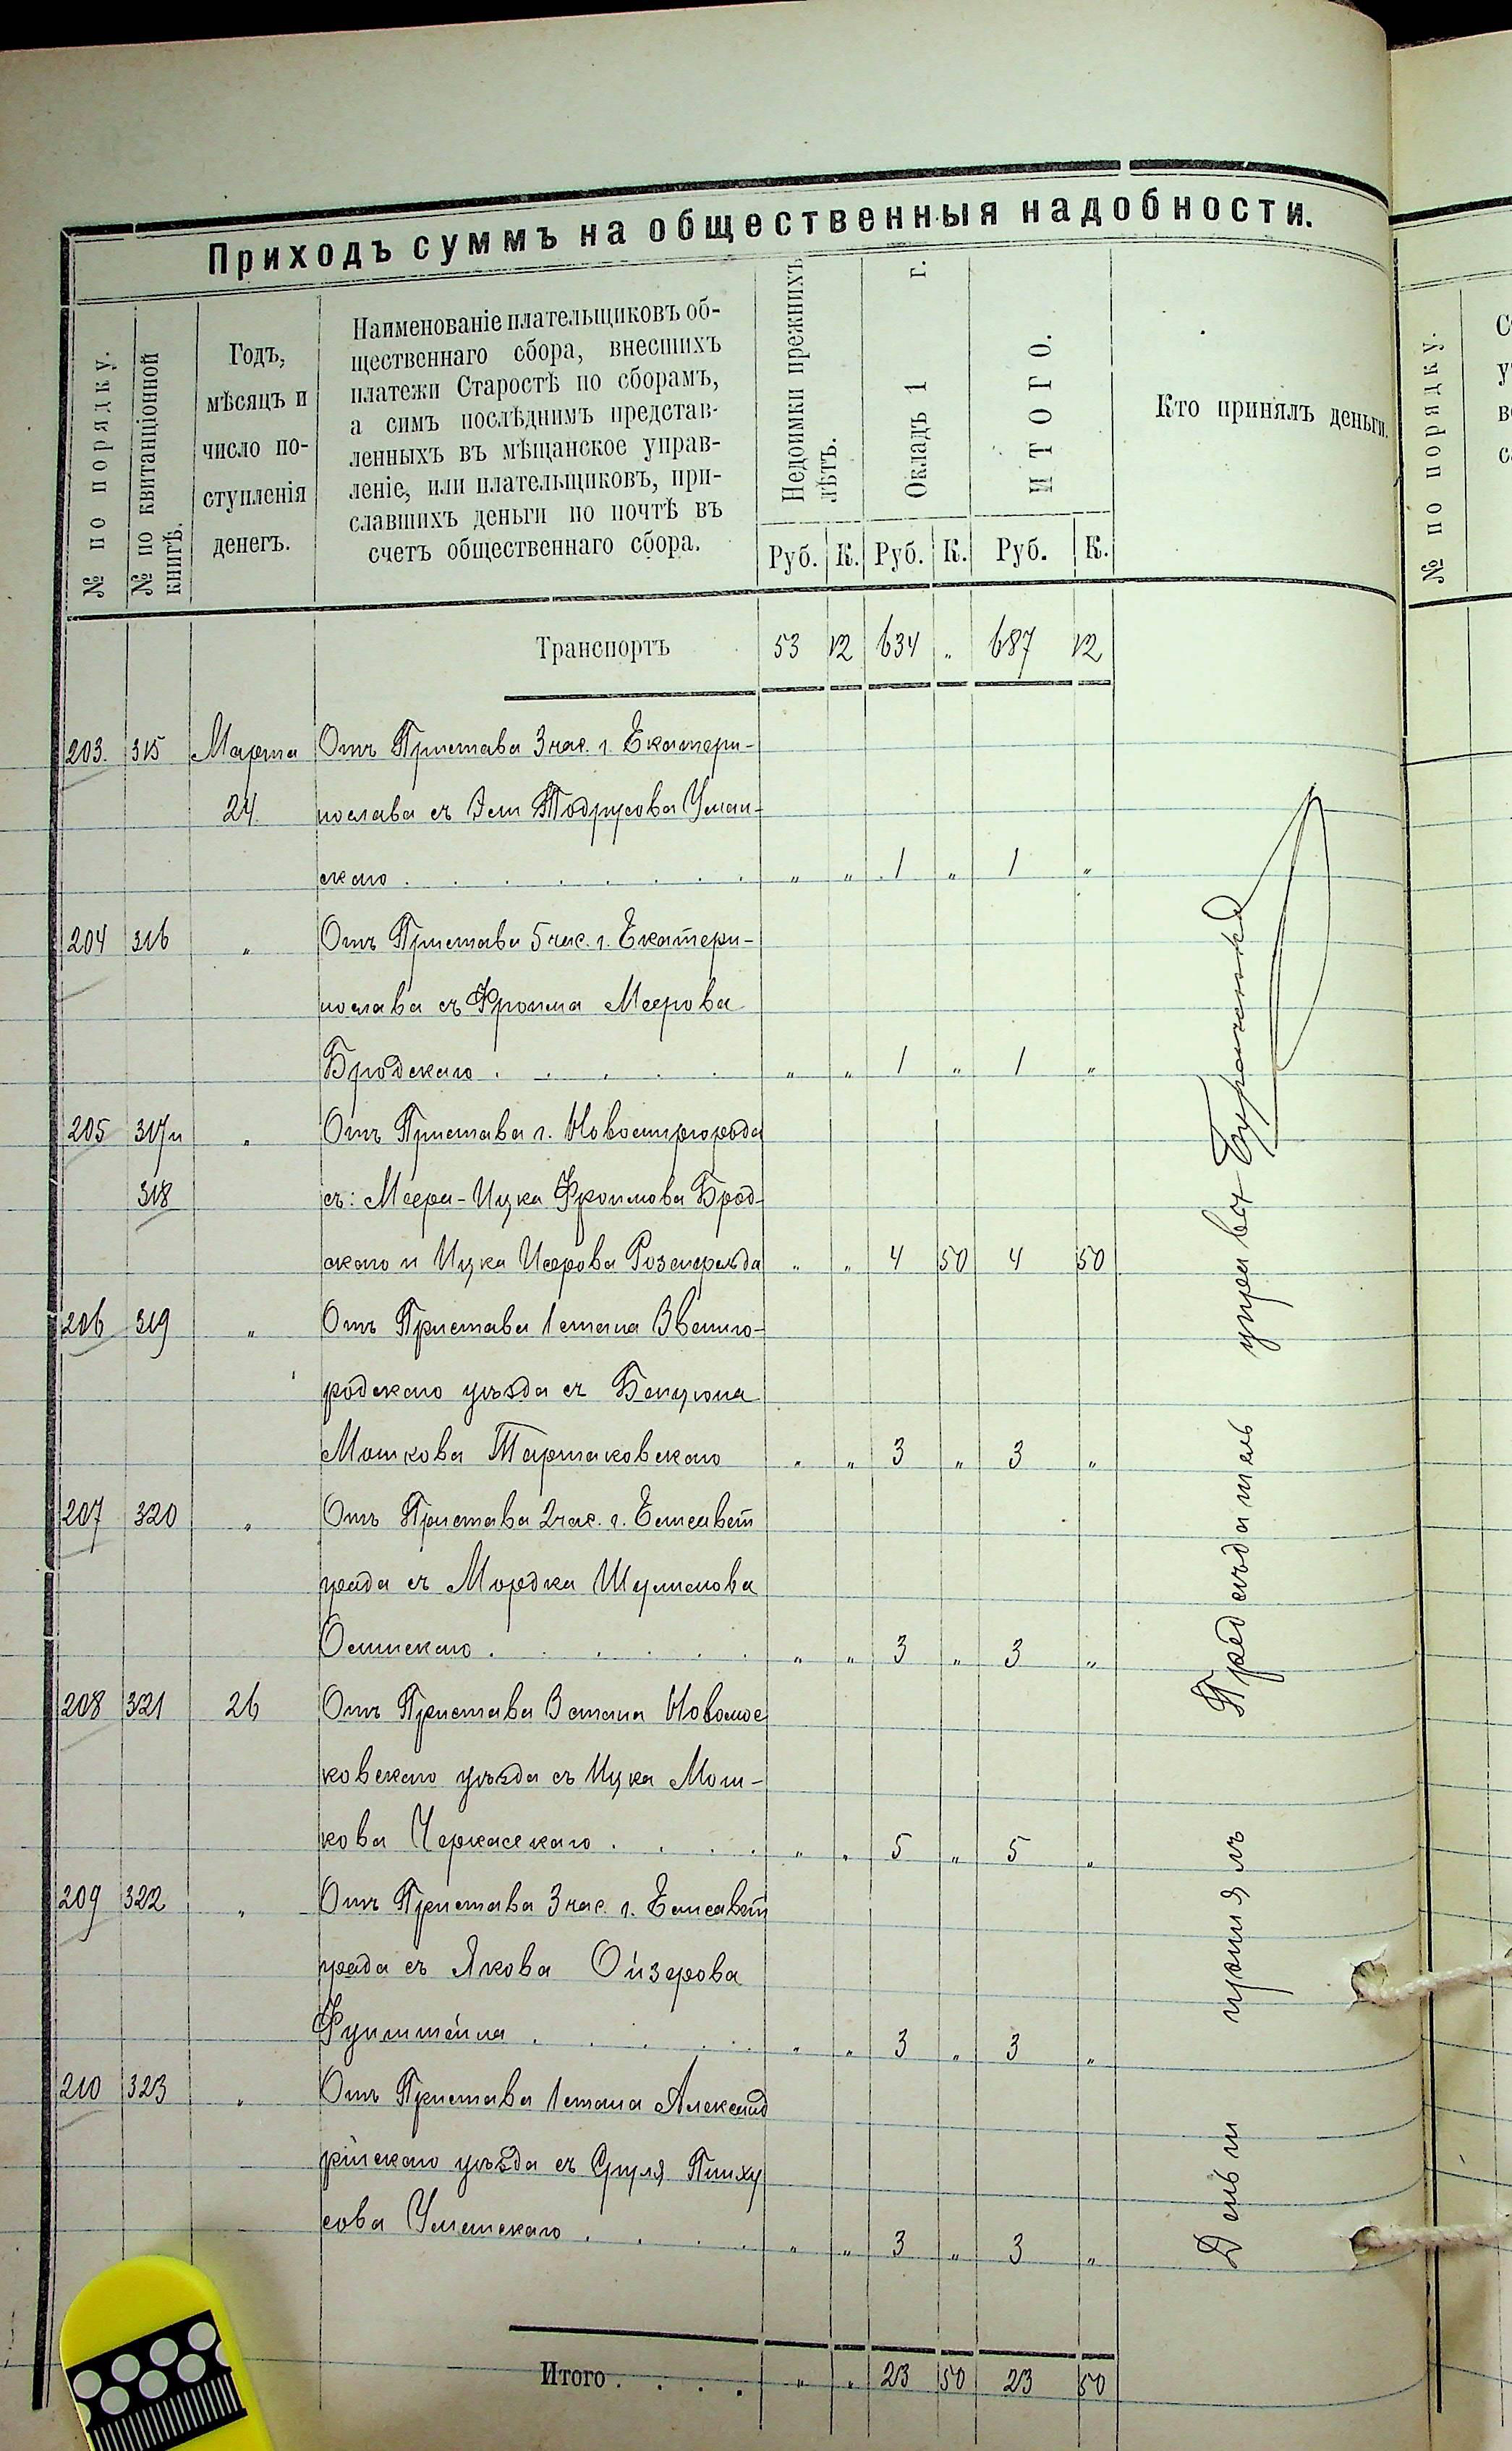 Приходъ суммъ на общественныя надобности.
№ по порядку.
№ по квитанціонной
книгѣ.
Годъ,
мѣсяцъ и
число по-
ступленія
денегъ.
Наименованіе плательщиковъ об-
щественнаго сбора, внесшихъ
платежи Старостѣ по сборамъ,
а симъ послѣднимъ представ-
ленныхъ въ мѣщанское управ-
леніе, или плательщиковъ, при-
славшихъ деньги по почтѣ въ
счетъ общественнаго сбора.
Недоимки прежнихъ
лѣтъ.
Окладъ 1 г.
ИТОГО.
Кто принялъ деньги.
Руб. К. Руб. К. Руб. К.
Транспортъ 53 12 634 " 687 12
203. 315 Марта Отъ Пристава 3 час. г. Екатери-
24 нослава съ Эли Тодрусова Уман-
скаго . . . . . . . " " 1 " 1 "
204 316 " Отъ Пристава 5 час. г. Екатери-
нослава съ Фроима Меерова
Бродскаго . . . . . " " 1 " 1 "
205 317 и " Отъ Пристава г. Новомиргорода
318 съ: Меера-Ицка Фроимова Брод-
скаго и Ицка Исерова Розенфельда " " 4 50 4 50
206 319 " Отъ Пристава 1 стана Звениго-
родскаго уѣзда съ Бенціона
Мошкова Тартаковскаго " " 3 " 3 "
207 320 " Отъ Пристава 2 час. г. Елисавет
града съ Мордка Шулимова
. . . . . . " " 3 " 3 "
208 321 26 Отъ Пристава 3 стана Новомос
ковскаго уѣзда съ Ицка Мош-
кова Черкасскаго . . . . " " 5 " 5 "
209 322 " Отъ Пристава 3 час. г. Елисавет
града съ Якова Ойзерова
. . . . . " " 3 " 3 "
210 323 " Отъ Пристава 1 стана Александ
рійскаго уѣзда съ Сруля Пинху
сова Уманскаго . . . . " " 3 " 3 "
Итого . . . . " " 23 50 23 50
Деньги принялъ Предсѣдатель управы
№ по порядку.